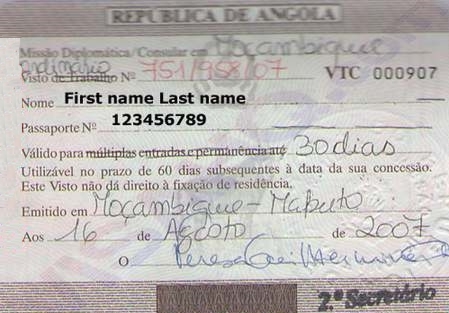 REPÚBLICA DE ANGOLA
Missão Diplomática/Consular em Moçambique
ordinário
Visto de Trabalho Nº 751/958/07 VTC 000907
Nome First name Last name
Passaporte Nº 123456789
Válido para múltiplas entradas e permanência até 30 dias
Utilizável no prazo de 60 dias subsequentes à data da sua concessão.
Este Visto não dá direito à fixação de residência.
Emitido em Moçambique - Maputo
Aos 16 de Agosto de 2007
O
2.º Secretário